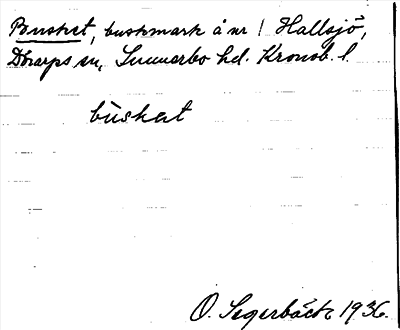 Buskat, buskmark å nr 1 Hallsjö,
Dörarps sn, Sunnerbo hd. Kronob. l.
bùskat
O. Segerbäck 1936.